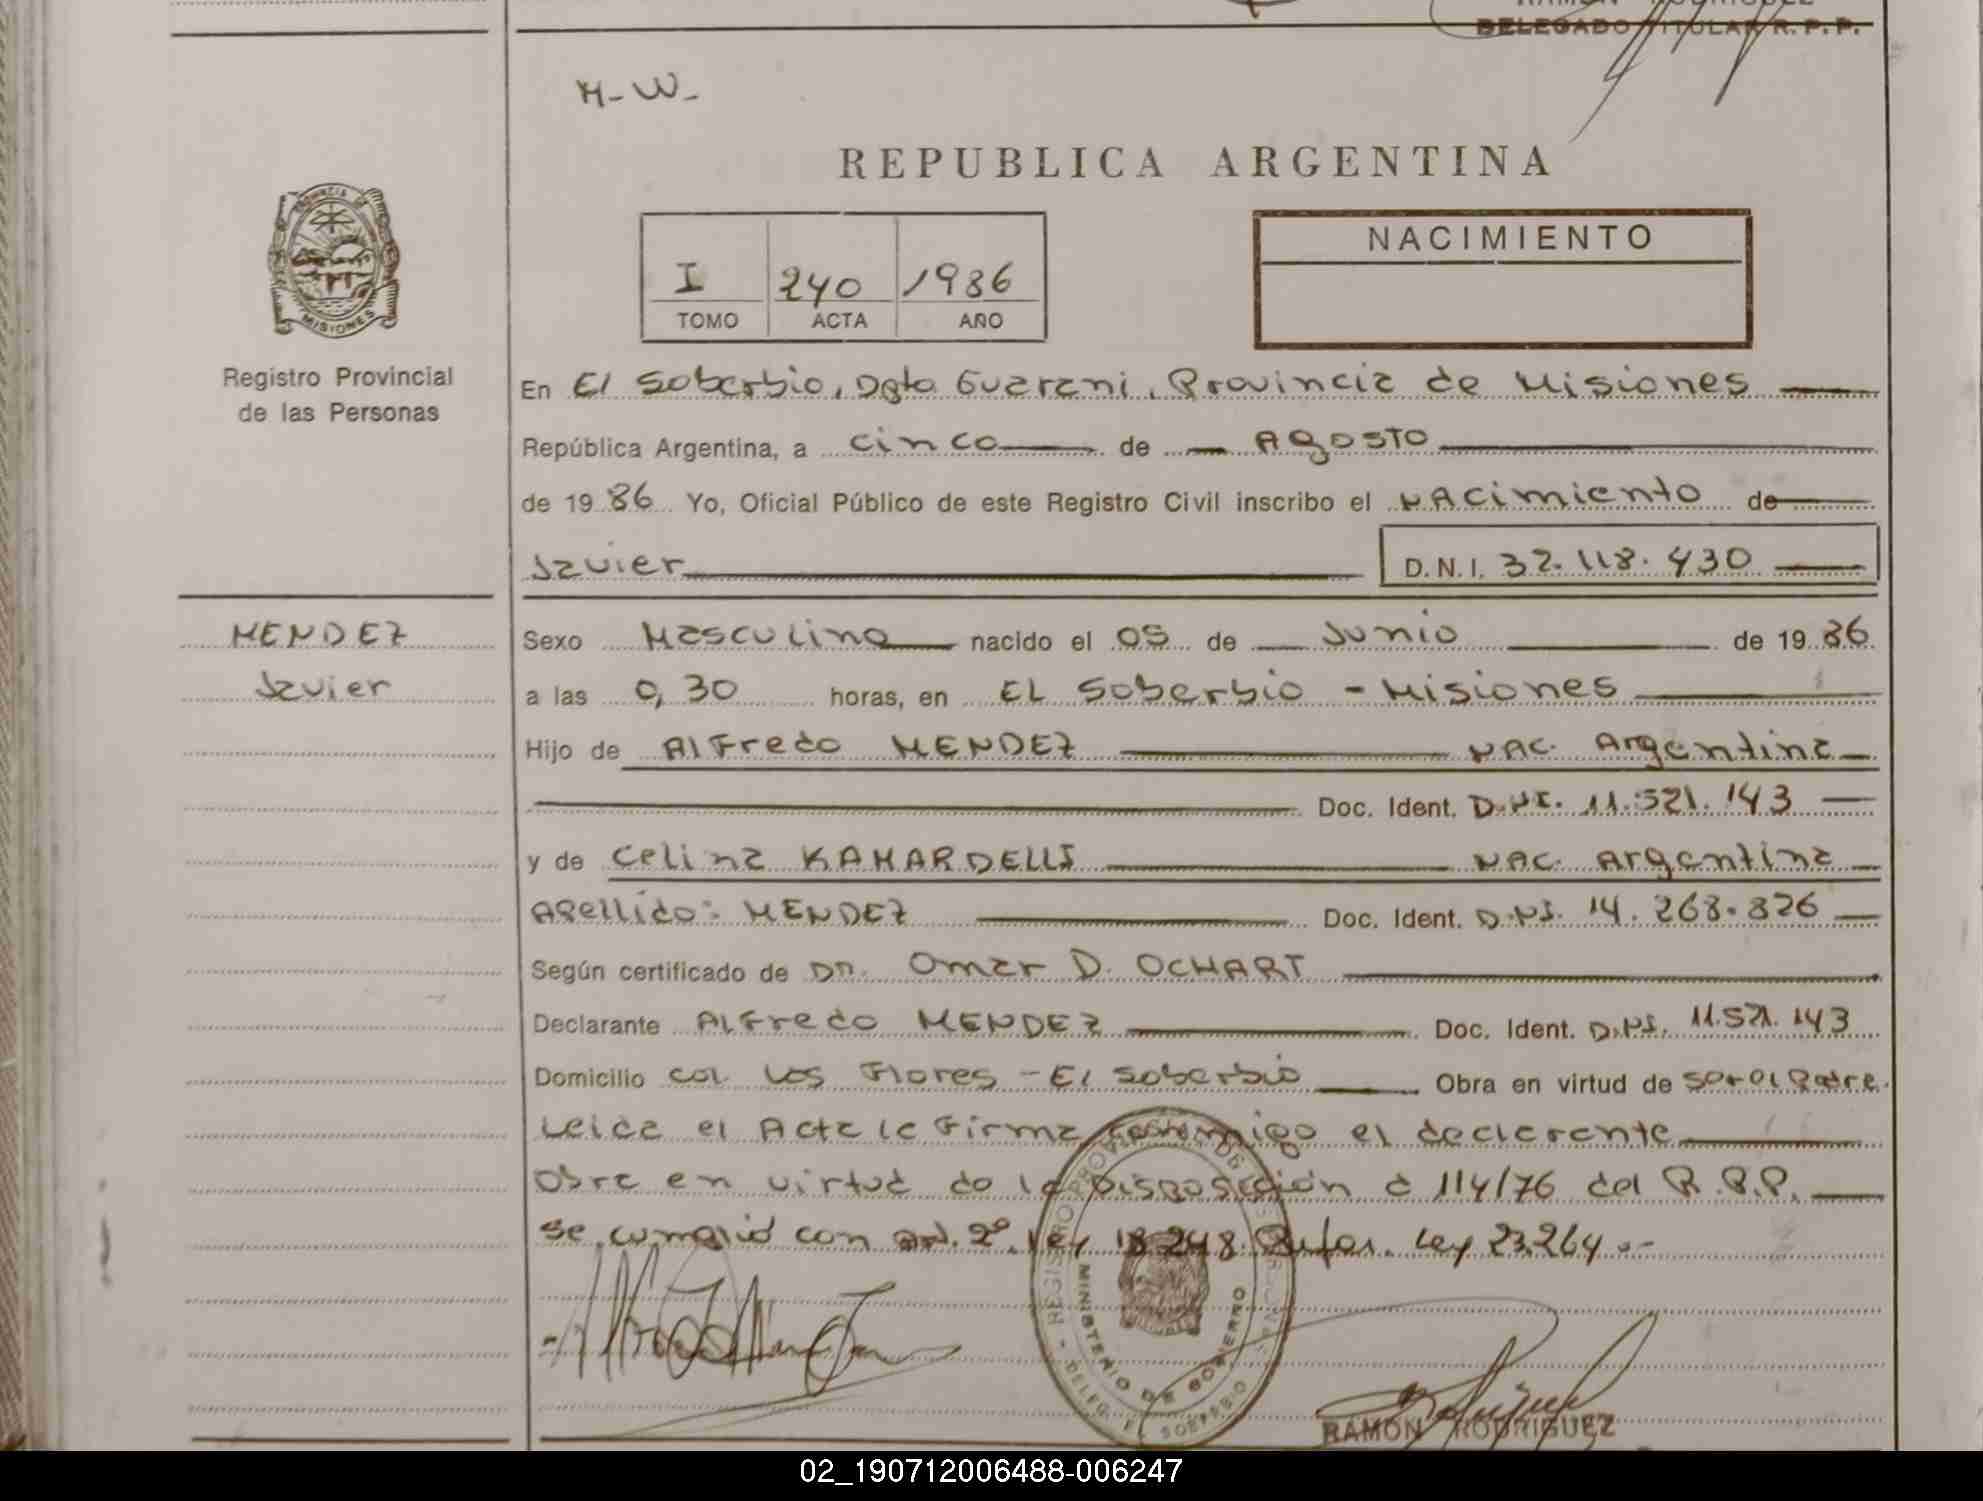 RAMON RODRIGUEZ
DELEGADO TITULAR R.P.P.
M-W-
REPUBLICA ARGENTINA
I 240 1986
TOMO ACTA AÑO
NACIMIENTO
PROVINCIA DE
MISIONES
Registro Provincial
de las Personas
En El Soberbio, Dpto Guarani, Provincia de Misiones
República Argentina, a cinco de Agosto
de 1986 Yo, Oficial Público de este Registro Civil inscribo el NAcimiento de
Javier D.N.I. 32.118.430
MENDEZ
Javier
Sexo Masculino nacido el 05 de Junio de 1986
a las 0,30 horas, en EL Soberbio - Misiones
Hijo de Alfredo MENDEZ NAC. Argentina
Doc. Ident. D.NI. 11.521.143
y de Celina KAMARDELLI NAC. Argentina
Apellido: MENDEZ Doc. Ident. D.NI. 14.268.826
Según certificado de Dr. Omar D. OCHART
Declarante Alfredo MENDEZ Doc. Ident. D.NI. 11.521.143
Domicilio col. Las Flores - El Soberbio Obra en virtud de ser el Padre.
Leida el Acta la Firma conmigo el declarante
Obra en virtud de la Disposición a 114/76 del R.P.P.
Se cumplió con art. 2º. Ley 18.248. Ley 23.264.-
MINISTERIO DE GOBIERNO
RAMON RODRIGUEZ
02_190712006488-006247